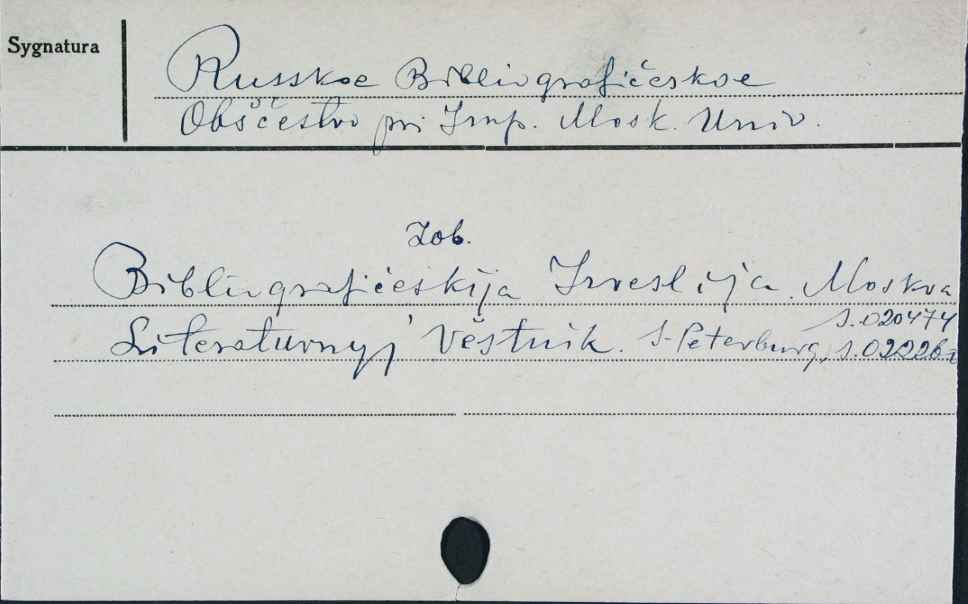 Sygnatura
Russkoe Bibliografičeskoe
Obščestvo pri Imp. Mosk. Univ.
Zob.
Bibliografičeskija Izvestija. Moskva
S.020474
Literaturnyj Věstnik. S-Peterburg, S.02226